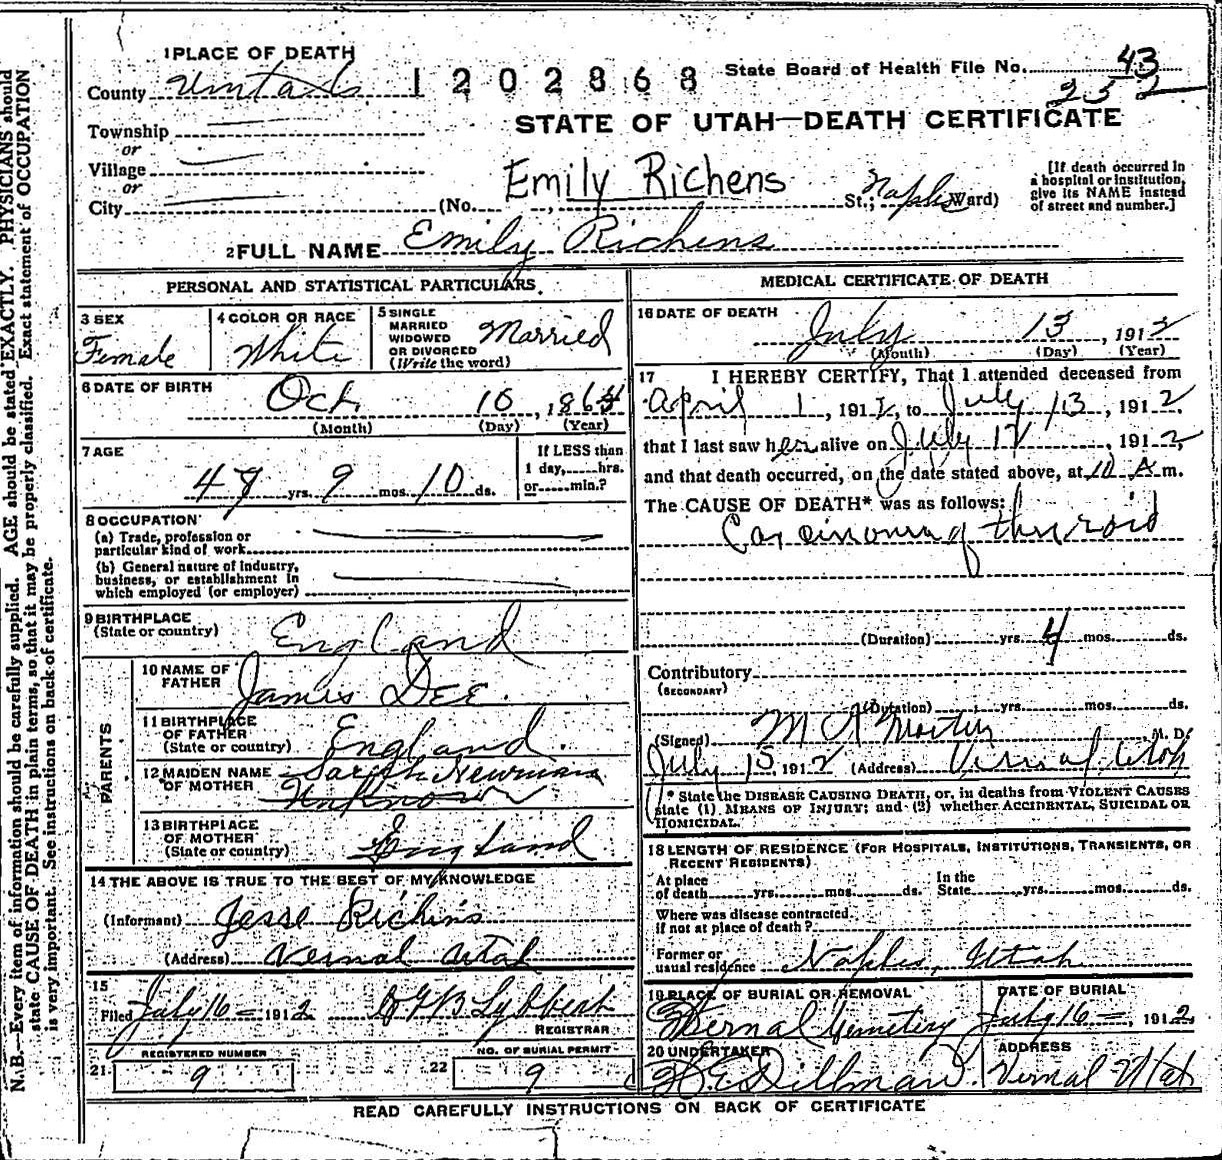 1 PLACE OF DEATH
County Uintah 1202868 State Board of Health File No. 43
252
Township
or
STATE OF UTAH—DEATH CERTIFICATE
Village
or
City (No. Emily Richens St.; Naples Ward)
[If death occurred in a hospital or institution, give its NAME instead of street and number.]
2 FULL NAME Emily Richens
PERSONAL AND STATISTICAL PARTICULARS.
3 SEX
Female
4 COLOR OR RACE
White
5 SINGLE
MARRIED
WIDOWED
OR DIVORCED
(Write the word)
Married
6 DATE OF BIRTH
Oct 10, 1864
(Month) (Day) (Year)
7 AGE
47 yrs. 9 mos. 10 ds.
If LESS than
1 day,......hrs.
or......min.?
8 OCCUPATION
(a) Trade, profession or
particular kind of work
(b) General nature of industry,
business, or establishment in
which employed (or employer)
9 BIRTHPLACE
(State or country) England
PARENTS
10 NAME OF
FATHER James Dee.
11 BIRTHPLACE
OF FATHER
(State or country) England.
12 MAIDEN NAME
OF MOTHER Sarah Newman
Unknown
13 BIRTHPLACE
OF MOTHER
(State or country) England
14 THE ABOVE IS TRUE TO THE BEST OF MY KNOWLEDGE
(Informant) Jesse Richins
(Address) Vernal Utah
15
Filed July 16 1912
REGISTRAR
REGISTERED NUMBER
21 9
NO. OF BURIAL PERMIT
22 9
MEDICAL CERTIFICATE OF DEATH
16 DATE OF DEATH
July 13, 1912
(Month) (Day) (Year)
17 I HEREBY CERTIFY, That I attended deceased from
April 1, 1912, to July 13, 1912,
that I last saw her alive on July 12, 1912,
and that death occurred, on the date stated above, at 10 A m.
The CAUSE OF DEATH* was as follows:
Carcinoma of thyroid
(Duration) yrs. 4 mos. ds.
Contributory
(SECONDARY)
(Duration) yrs. mos. ds.
(Signed) M. D.
July 15, 1912 (Address) Vernal, Utah
* State the DISEASE CAUSING DEATH, or, in deaths from VIOLENT CAUSES
state (1) MEANS OF INJURY; and (2) whether ACCIDENTAL, SUICIDAL OR
HOMICIDAL.
18 LENGTH OF RESIDENCE (FOR HOSPITALS, INSTITUTIONS, TRANSIENTS, OR
RECENT RESIDENTS)
At place
of death yrs. mos. ds.
In the
State yrs. mos. ds.
Where was disease contracted
if not at place of death?
Former or
usual residence Naples, Utah
19 PLACE OF BURIAL OR REMOVAL
Vernal Cemetery
DATE OF BURIAL
July 16, 1912
20 UNDERTAKER
Dillman
ADDRESS
Vernal Utah
READ CAREFULLY INSTRUCTIONS ON BACK OF CERTIFICATE
N. B.—Every item of information should be carefully supplied. AGE should be stated EXACTLY. PHYSICIANS should
state CAUSE OF DEATH in plain terms, so that it may be properly classified. Exact statement of OCCUPATION
is very important. See instructions on back of certificate.